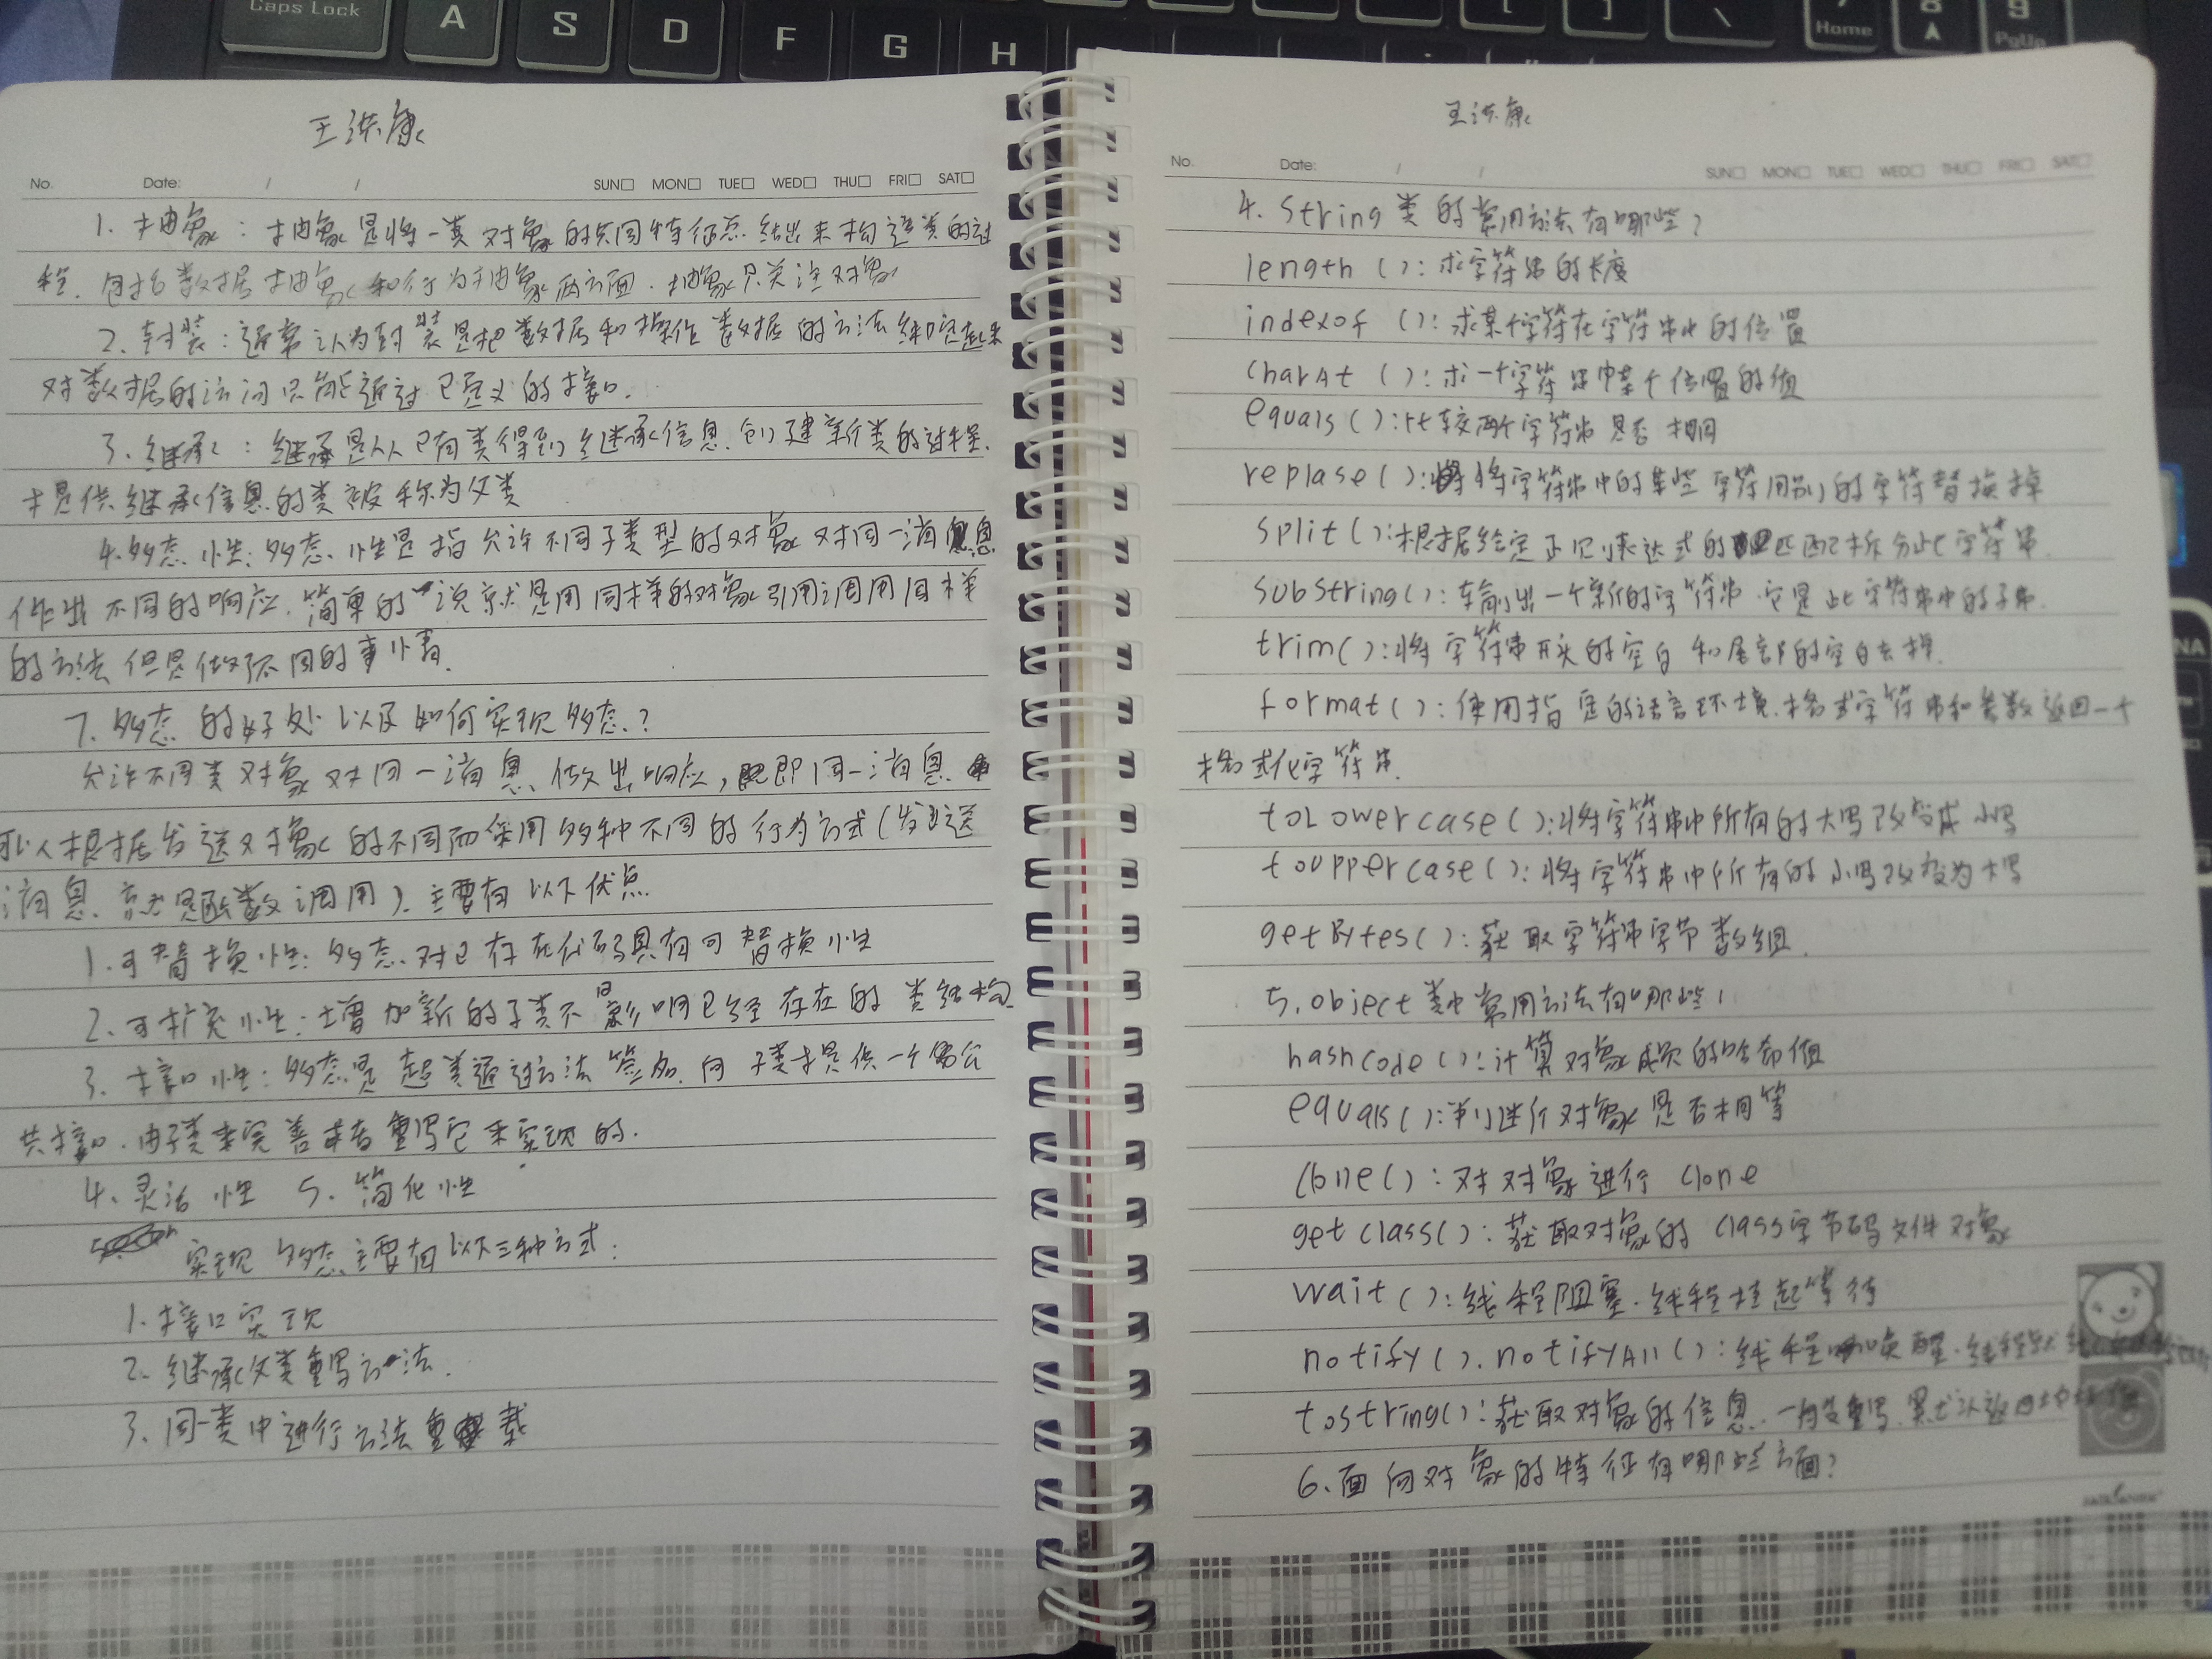 Caps Lock
A
S
D
F
G
H
[
]
\
7
Home
8
9
PgUp
王洪康
No. Date: / / SUN□ MON□ TUE□ WED□ THU□ FRI□ SAT□
1. 抽象：抽象是将一类对象的共同特征总结出来构造类的过
程.包括数据抽象和行为抽象两方面.抽象只关注对象
2. 封装：通常认为封装是把数据和操作数据的方法绑定起来
对数据的访问只能通过已定义的接口.
3. 继承：继承是从已有类得到继承信息.创建新类的过程.
提供继承信息的类被称为父类
4.多态性：多态性是指允许不同子类型的对象对同一消息
作出不同的响应.简单的说就是用同样的对象引用调用同样
的方法但是做了不同的事情.
7. 多态的好处以及如何实现多态？
允许不同类对象对同一消息做出响应，即同一消息
可以根据发送对象的不同而采用多种不同的行为方式(发送
消息就是函数调用).主要有以下优点
1.可替换性：多态对已存在代码具有可替换性
2.可扩充性：增加新的子类不影响已经存在的类结构
3. 接口性：多态是超类通过方法签名.向子类提供一个公
共接口.由子类来完善或者重写它来实现的.
4. 灵活性 5. 简化性
实现多态主要有以下三种方式：
1.接口实现
2. 继承父类重写方法.
3. 同一类中进行方法重载
王洪康
No. Date: / / SUN□ MON□ TUE□ WED□ THU□ FRI□ SAT□
4. String 类的常用方法有哪些？
length ()：求字符串的长度
indexof ()：求某个字符在字符串中的位置
charAt ()：求一个字符串中某个位置的值
equals ()：比较两个字符串是否相同
replase ()：将字符串中的某些字符用别的字符替换掉
split ()：根据给定正则表达式的匹配拆分此字符串.
substring()：输出一个新的字符串.它是此字符串中的子串.
trim()：将字符串开头的空白和尾部的空白去掉.
format()：使用指定的语言环境.格式字符串和参数返回一个
格式化字符串.
toLowercase ()：将字符串中所有的大写改变成小写
touppercase()：将字符串中所有的小写改变为大写
getBytes()：获取字符串字节数组.
5.object 类中常用方法有哪些！
hashcode ()：计算对象的哈希值
equals ()：判断对象是否相等
clone()：对对象进行 clone
getclass()：获取对象的 class字节码文件对象
wait ()：线程阻塞.线程挂起等待
notify().notifyAll ()：线程唤醒.
tostring()：获取对象的信息.一般重写.默认返回
6.面向对象的特征有哪些方面？